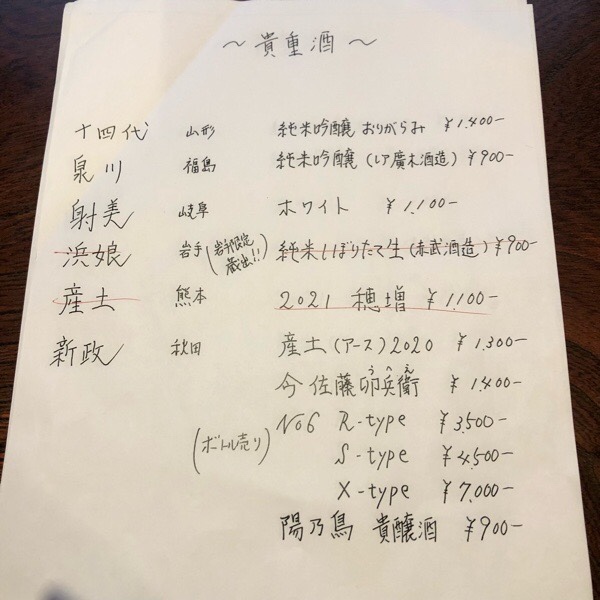 ～貴重酒～
十四代 山形 純米吟醸 おりがらみ ￥1,400-
泉川 福島 純米吟醸 (レア廣木酒造) ￥900-
射美 岐阜 ホワイト ￥1,100-
浜娘 岩手 (岩手限定蔵出!!) 純米しぼりたて生 (赤武酒造) ￥900-
産土 熊本 2021 穂増 ￥1,100-
新政 秋田 産土 (アース) 2020 ￥1,300-
今 佐藤卯兵衛 ￥1,400-
うへえ
No6 R-type ￥3,500-
(ボトル売り) S-type ￥4,500-
X-type ￥7,000-
陽乃鳥 貴醸酒 ￥900-